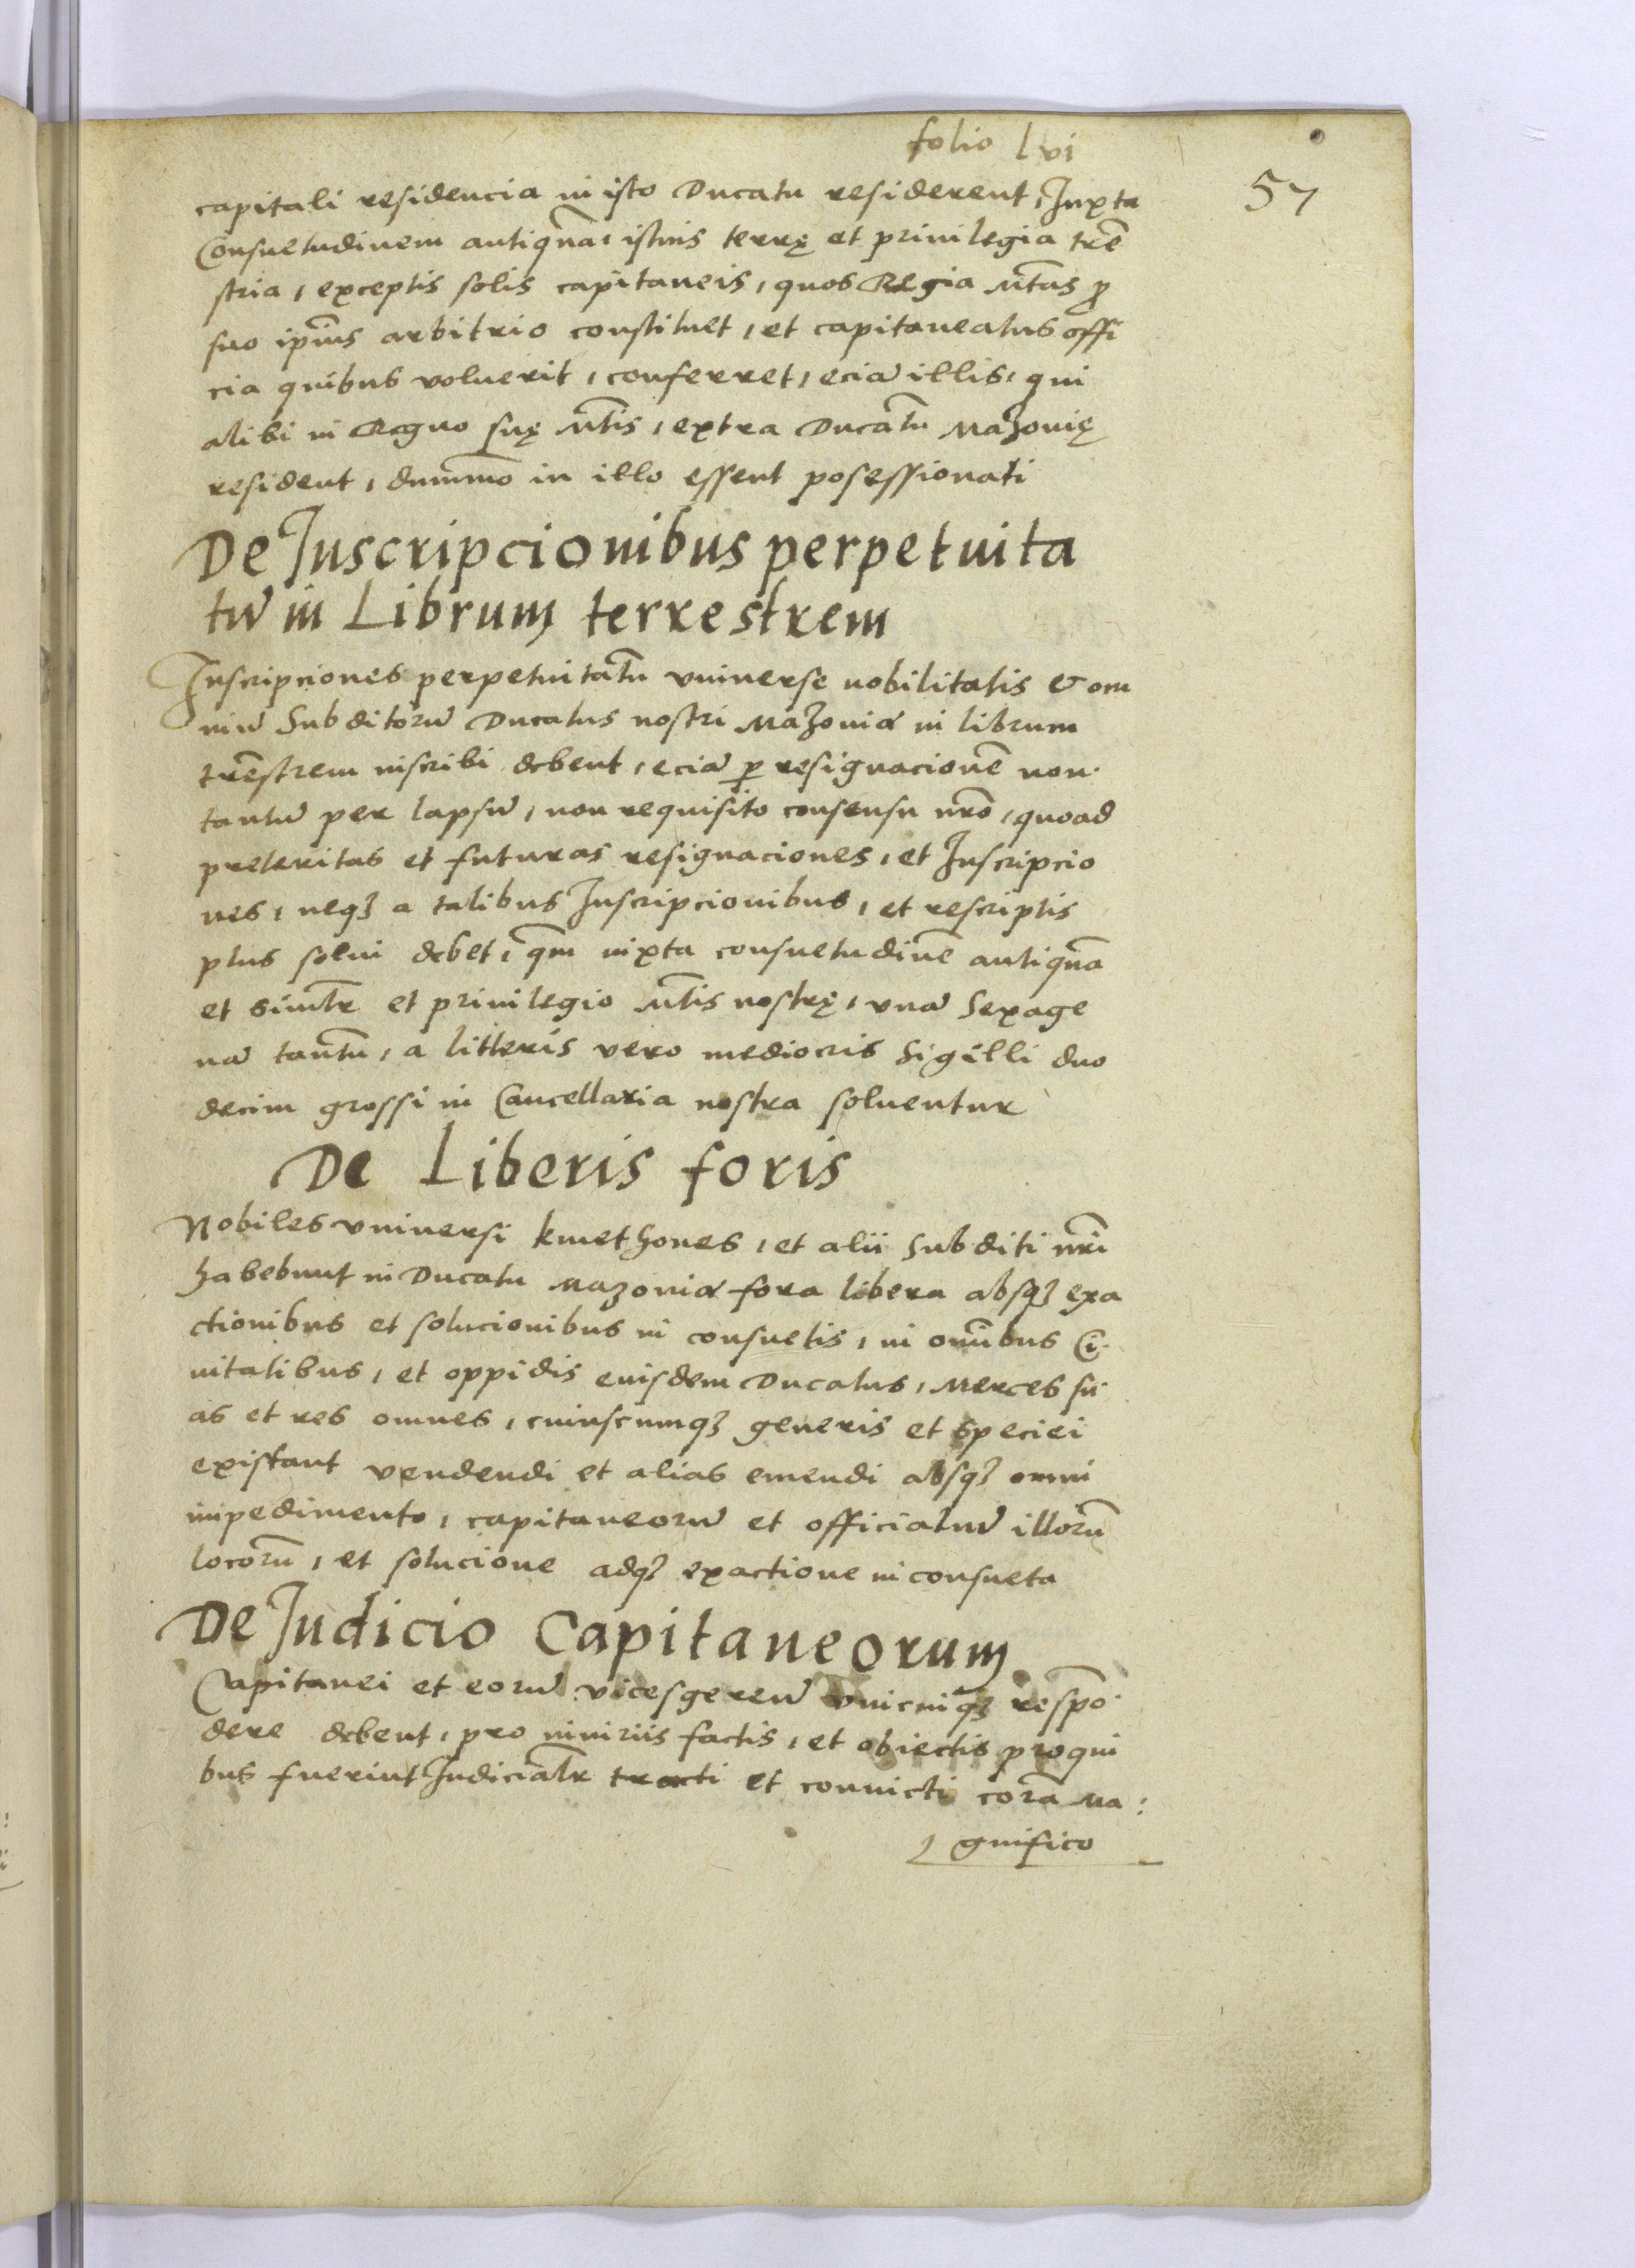 folio lvi
57
capitali residencia in isto Ducatu residerent, Juxta
Consuetudinem antiquã, istius terrę et priuilegia trẽ
stria, exceptis solis capitaneis, quos Regia Mtas ꝓ
suo ipĩus arbitrio constituet, et capitaneatus offi
cia quibus voluerit, conferret, eciã illis, qui
alibi in Regno suę Mtis, extra Ducatũ Mazouię
resident, dummõ in illo essent posessionati
De Inscripcionibus perpetuita
tũ in Librum terrestrem
Inscripciones perpetuitatũ vniuerse nobilitatis & om
niũ Subditorũ Ducatus nostri Mazoniæ in librum
trẽstrem inscribi debent, eciã ꝑ resignacionẽ non
tantũ per lapsũ, non requisito consensu nrõ, quoad
preteritas et futuras resignaciones, et Inscripcio
nes, neqꝫ a talibus Inscripcionibus, et rescriptis
plus solui debet, qm̃ iuxta consuetudinẽ antiquã
et simlr̃ et priuilegio Mtis nostrę, vnã Sexage
nã tantũ, a litteris vero mediocris Sigilli duo
decim grossi in Cancellaria nostra soluentur
De Liberis foris
Nobiles vniuersi kmethones, et alii Subditi nrĩ
habebunt in Ducatu Mazoniæ fora libera absqꝫ exa
ctionibus et solucionibus in consuetis, in omĩbus Ci
uitatibus, et oppidis euisdem Ducatus, Merces su
as et res omnes, cuiuscumqꝫ generis et speciei
existant vendendi et alias emendi absqꝫ omni
impedimento, capitaneorũ et officialiũ illorũ
locorũ, et solucione adqꝫ exactione in consueta
De Judicio Capitaneorum
Capitanei et eorũ vicesgerẽn vnicuiqꝫ respõ
dere debent, pro iniuriis factis, et obiectis pro qui
bus fuerint Judicialr̃ tracti et conuicti corã Ma:
gnifico